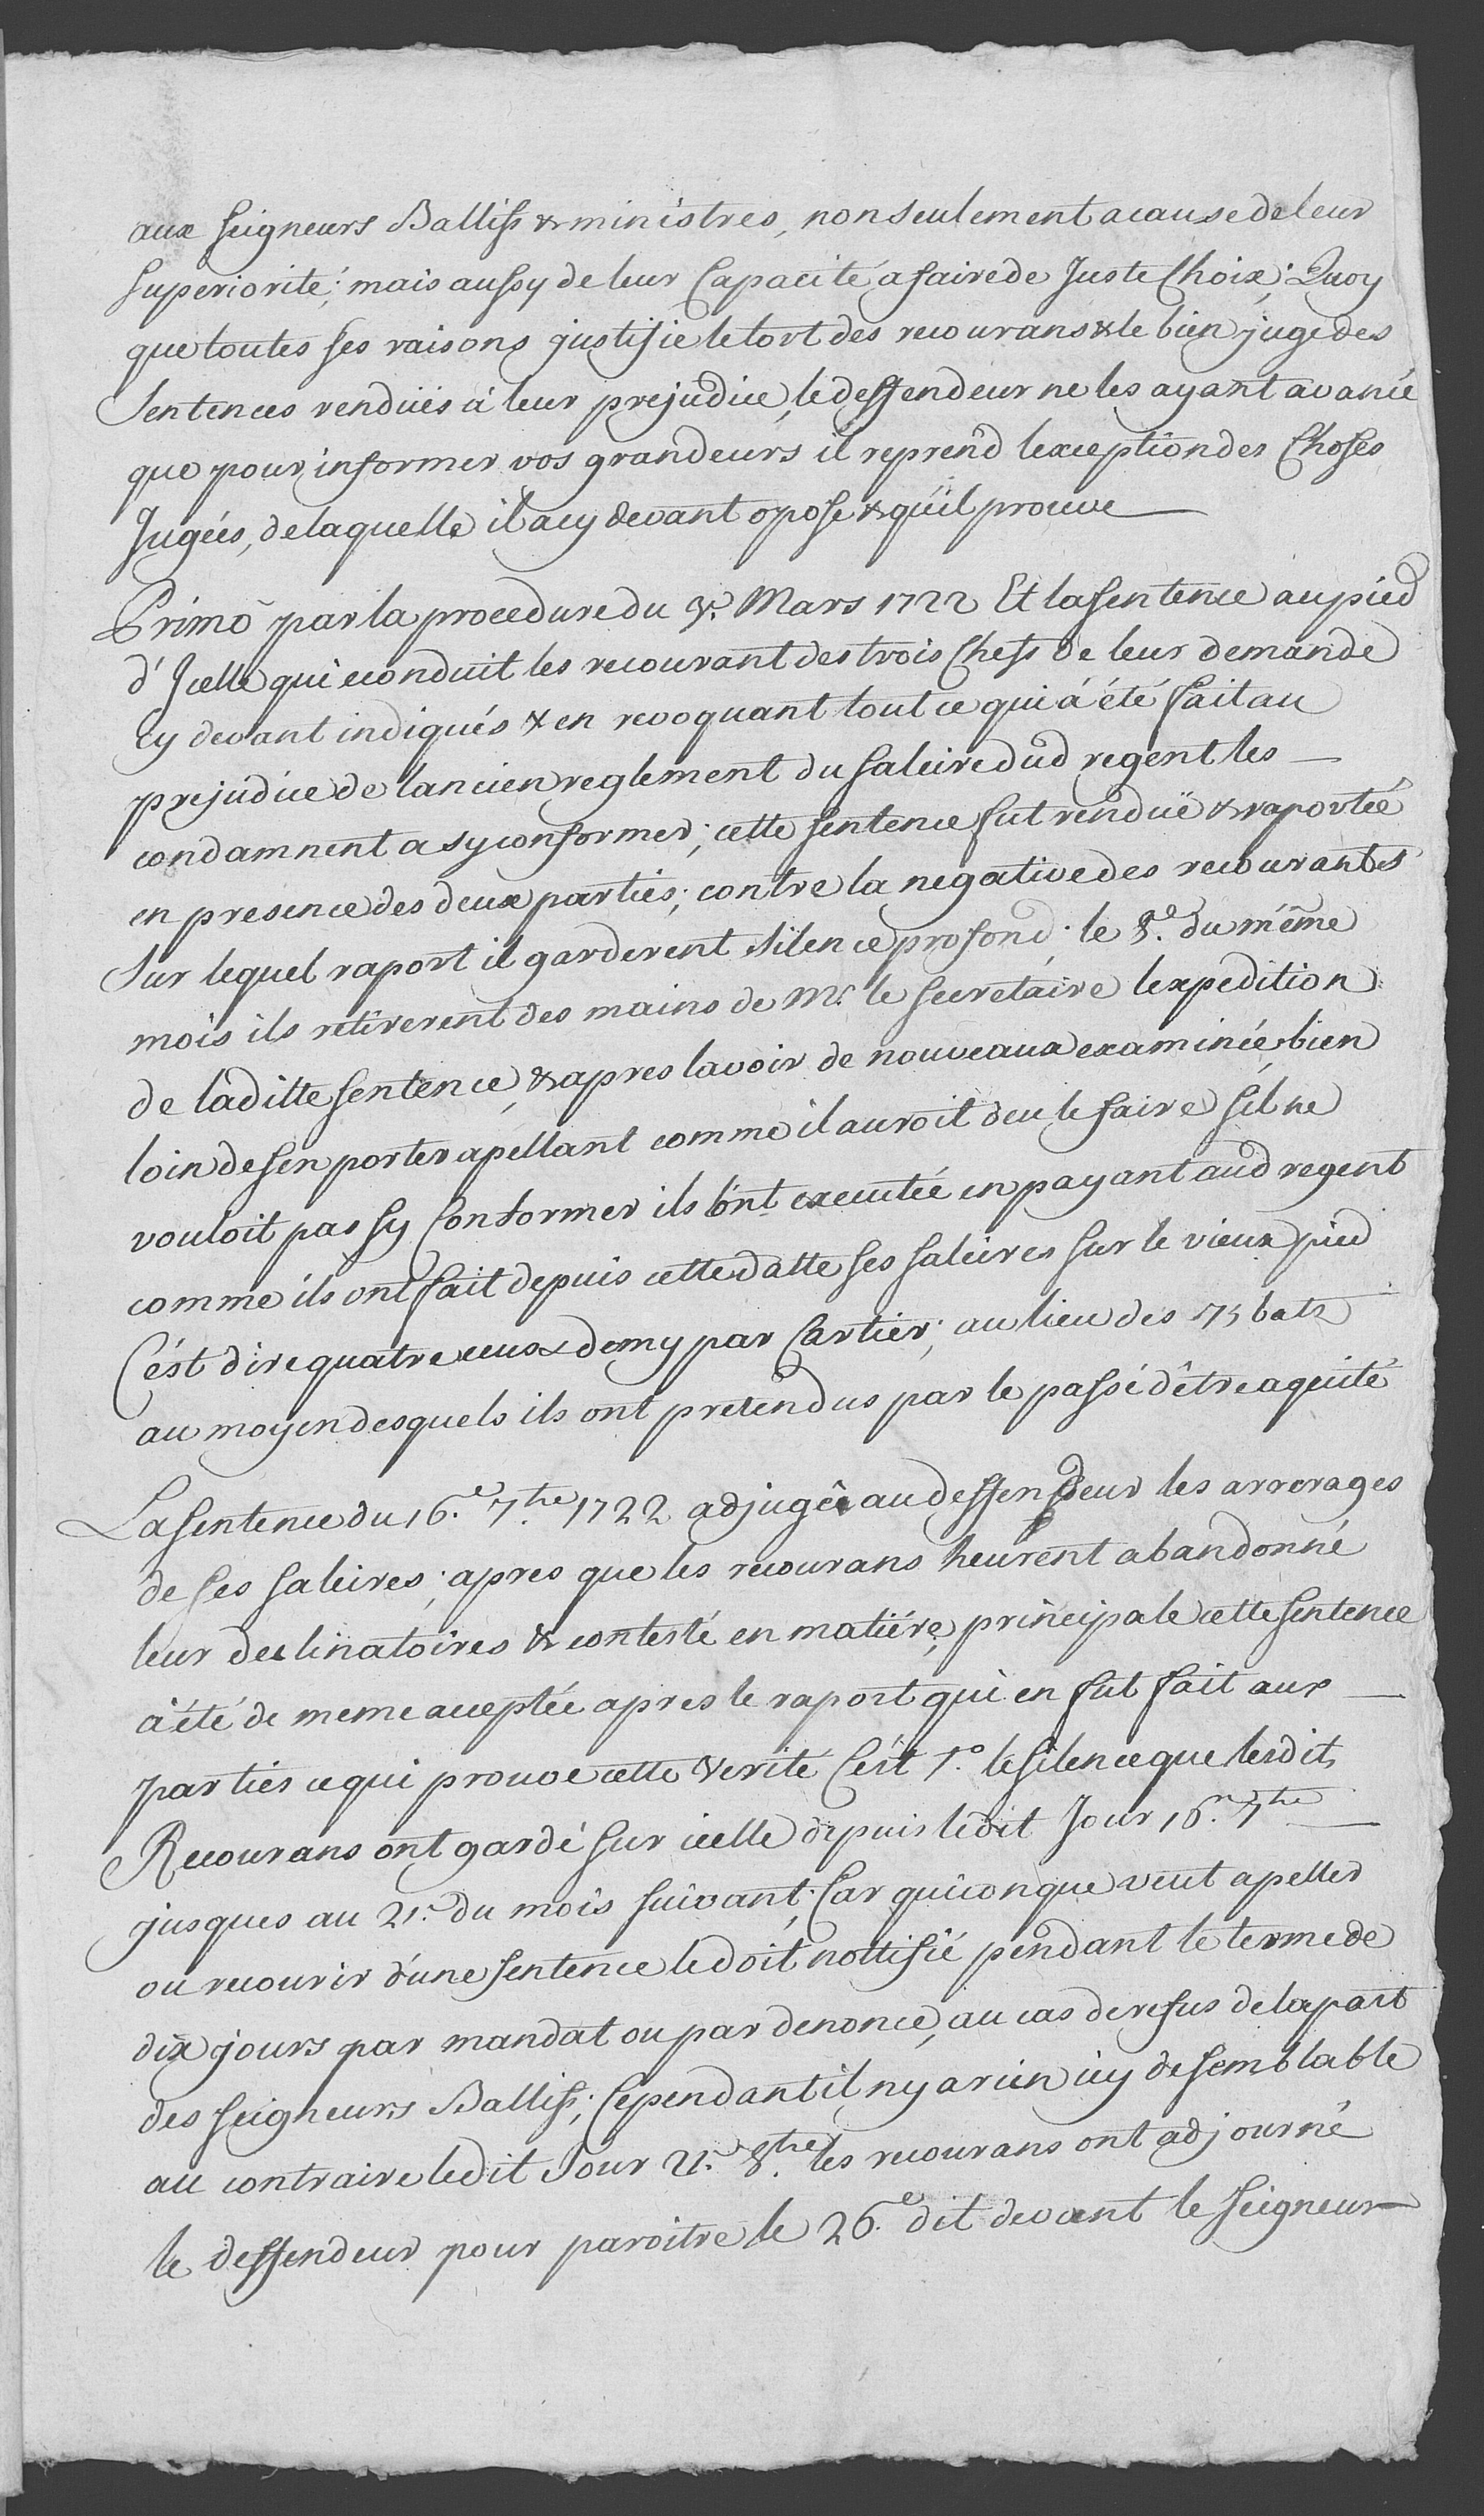 aux seigneurs Ballifs & ministres, non seulement a cause de leur
superiorité; mais aussy de leur Capacité a faire de Juste Choix; Quoy
que toutes ses raisons justifie le tort des recourans & le bien juge des
Sentences renduës à leur prejudice, le deffendeur ne les ayant avancé
que pour informer vos grandeurs il reprend lexception des Choses
Jugées, de laquelle il a cy devant opose & qu'il prouve
Primo par la procedure du Mars 1722 Et la sentence au pied
d'Icelle qui econduit les recourant des trois Chefs de leur demande
Cy devant indiqués & en revoquant tout ce qui à été fait au
prejudice de lancien reglement du saleire dud regent les
condamnent a sy conformer; cette sentence fut renduë & raportée
en presence des deux parties; contre la negative des recourantes
Sur lequel raport il garderent silence profond; le 8.e du même
mois ils retirerent des mains de Mr. le secretaire lexpedition
de laditte sentence, & apres lavoir de nouveaux examinée, bien
loin de sen porter apellant comme il auroit deu le faire sil ne
vouloit pas sy Conformer ils l'ont executée en payant aud regent
comme ils ont fait depuis cette datte ses saleires sur le vieux pied
C'ést dire quatre ecus & demy par Cartier; au lieu des 75 batz
au moyen desquels ils ont pretendus par le passé d'être aquité
La sentence du 16.e 7.bre 1722 adjugée au deffendeur les arrerages
de ses saleires; apres que les recourans heurent abandonné
leur declinatoires & contesté en matiére principale cette sentence
à été de meme acceptée apres le raport qui en fut fait aux
parties ce qui prouve cette verité C'ést 1.o le silence que lesdits
Recourans ont gardé sur icelle depuis ledit Jour 16.e 7.bre
jusques au 21.e du mois suivant; Car quiconque veut apeller
ou recourir d'une sentence le doit nottifié pendant le terme de
dix jours par mandat ou par denonce, au cas de refus de la part
des seigneurs Ballifs; Cependant il ny a rien icy de semblable
au contraire ledit Jour 21.e 8.bre les recourans ont adjourné
le deffendeur pour paroitre le 26.e dit devant le seigneur